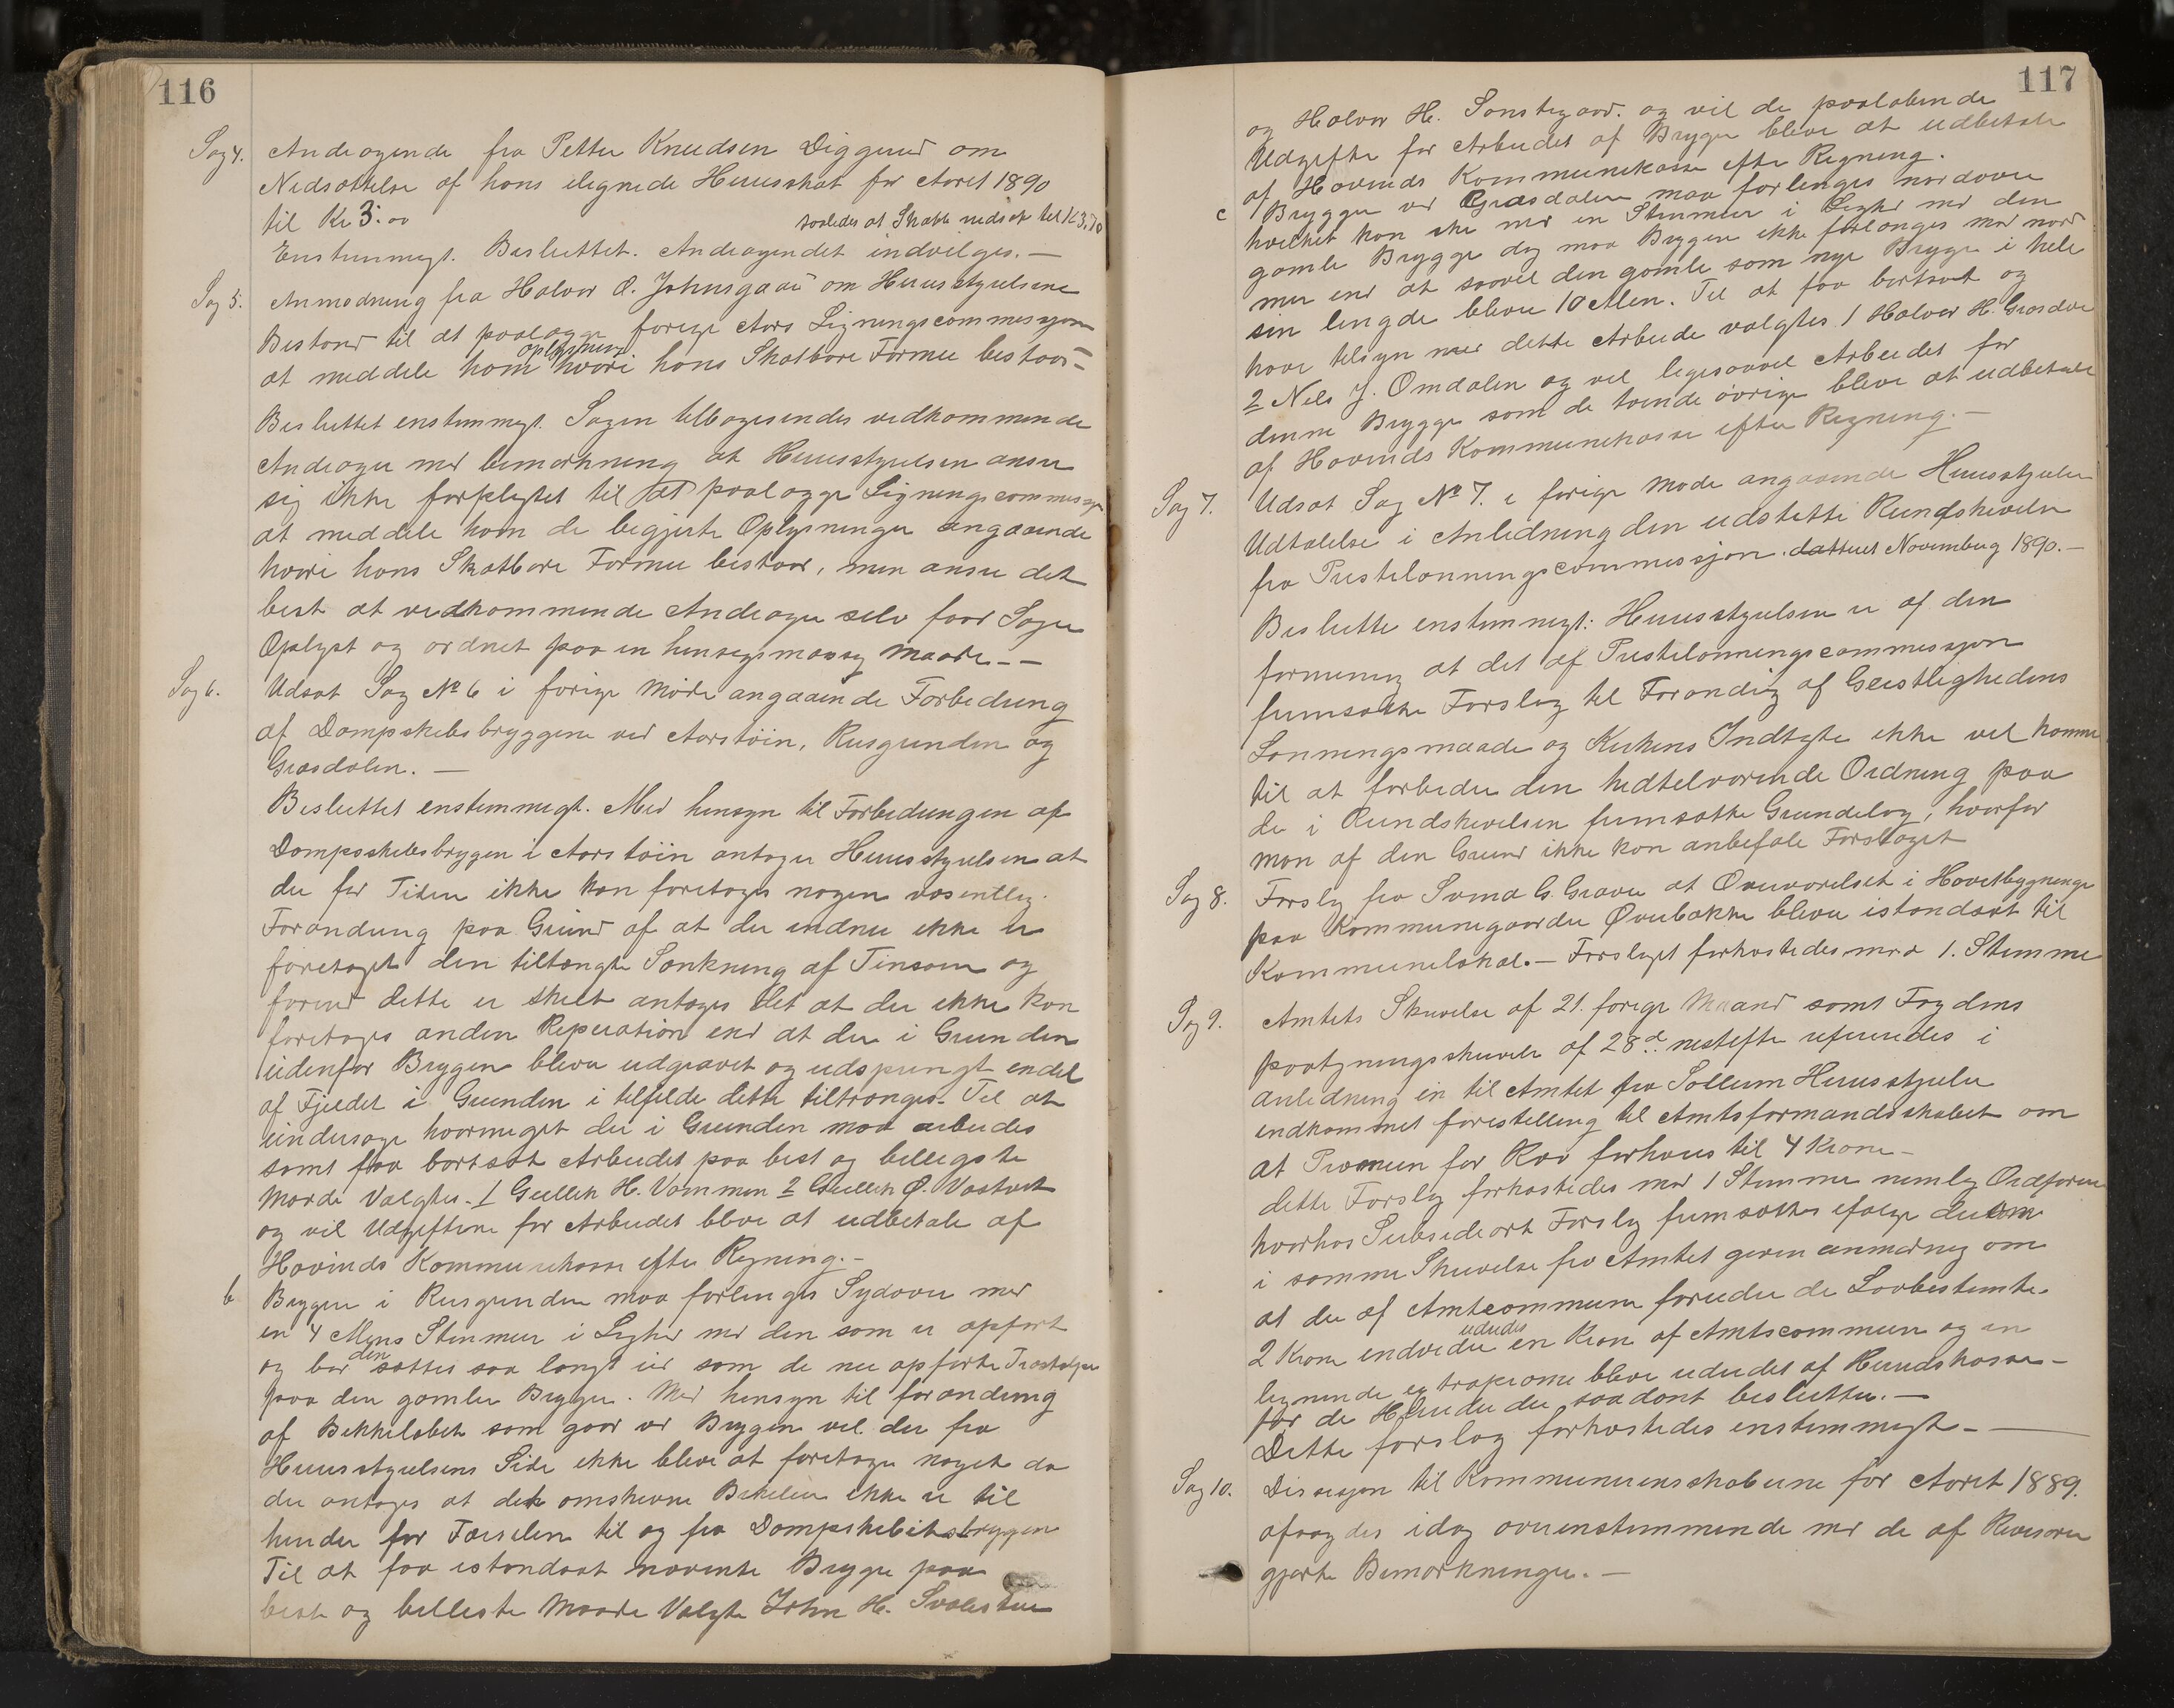 116
Sag 4. Andragende fra Petter Knudsen Diggerud om
Nedsættelse af hans ilignede Herredsskat for Aaret 1890
til Kr 3.00
saaledes at Skatten nedsat til K 3,70
Enstemmigt. Besluttet. Andragendet indvilges. —
Sag 5. Anmodning fra Halvor O. Johnsgaard om Herredsstyrelsens
Bistand til at paalægge forrige Aars Ligningscommissjon
at meddele ham oplysning hvori hans Skatbare Formue bestaar –
Besluttet enstemmigt. Sagen tilbagesendes vedkommende
Andrager med bemærkning at Herredsstyrelsen anser
sig ikke forpligtet til at paalægge Ligningscommissjon
at meddele ham de begjærte Oplysninger angaaende
hvori hans Skatbare Formue bestaar, men anser det
best at vedkommende Andrager selv faar Sagen
Oplyst og ordnet paa en hensigsmæssig Maade. –
Sag 6. Udsat Sag No 6 i forrige Møde angaaende Forbedring
af Dampskibsbryggene ved Aarstöin, Rusgrunden og
Græsdalen. —
Besluttet enstemmigt. Med hensyn til Forbedringen af
Dampsskibsbryggen i Aarstöin antager Herredsstyrelsen at
der for Tiden ikke kan foretages nogen væsentlig
Forandring paa Grund af at der endnu ikke er
foretaget den tiltængte Sænkning af Tinsøen og
forend dette er skeet antages det at der ikke kan
foretages anden Reperation end at der i Grunden
udenfor Bryggen bliver udgravet og udsprengt endel
af Fjeldet i Grunden i tilfelde dette tiltrænges. Til at
undersøge hvormeget der i Grunden maa arbeides
samt faa bortsat Arbeidet paa best og billigste
Maade Valgtes. 1 Gullik H. Vammen 2 Gullik Ø. Vastveit
og vil Udgifterne for Arbeidet blive at udbetale af
Hovinds Kommunekasse efter Regning. –
b Bryggen i Rusgrunden maa forlænges Sydover med
en 4 Alens Stenmur i Lighed med den som er opført
og bør den sættes saa langt ud som de nu opførte Træstolper
paa den gamle Brygge. Med hensyn til forandring
af Bekkeløbet som gaar ved Bryggen vil der fra
Herredsstyrelsens Side ikke blive at foretage noget da
der antages at det omskrevne Bekkeløb ikke er til
hinder for Færselen til og fra Dampskibsbryggen
Til at faa istandsat nævnte Brygge paa
beste og billeste Maade Valgte John H. Svalestuen
117
og Halvor H. Sønstegaard. og vil de paaløbende
Udgifter for Arbeidet af Bryggen blive at udbetale
af Hovinds Kommunekasse efter Regning.
c Bryggen ved Græsdalen maa forlenges nordover
hvilket kan ske med en Stenmur i Lighed med den
gamle Brygge dog maa Bryggen ikke forlænges mod nord
mer end at saavel den gamle som nye Brygge i hele
sin lengde bliver 10 Alen. Til at faa bortsat og
have tilsyn med dette Arbeide valgtes 1 Halvor H. Græsdalen
2 Nils J. Omdalen og vil ligesaavel Arbeidet for
denne Brygge som de tvende øvrige blive at udbetale
af Hovinds Kommunekasse efter Regning. —
Sag 7. Udsat Sag No 7. i forrige Møde angaaende Herredsstyrelsens
Udtalelse i Anledning den udstedte Rundskrivelse
fra Prestelønningscommissjon. datteret November 1890. —
Beslutte enstemmigt: Herredsstyrelsen er af den
formening at det af Prestelønningscommissjon
fremsatte Forslag til Forandrig af Geistlighedens
Lønningsmaade og Kirkens Indtægte ikke vil komme
til at forbedre den hidtilværende Ordning paa
de i Rundskrivelsen fremsatte Grundelag, hvorfor
man af den Grund ikke kan anbefale Forslaget
Sag 8. Forslag fra Svend G. Graver at Øverværelset i Hovedbygningen
paa Kommunegaarden Øverbakke bliver istandsat til
Kommunelokal. — Forslaget forkastedes mod 1. Stemme
Sag 9. Amtets Skrivelse af 21. forrige Maand samt Fogdens
paategningsskrivelse af 28d. nestefter refereredes i
anledning en til Amtet fra Solum Herredsstyrelse
indkommet forestilling til Amtsformandsskabet om
at Premien for Ræv forhøies til 4 Krone –
dette Forslag forkastedes mod 1 Stemme nemlig Ordføreren
hvorhos Subsidiært Forslag fremsattes ifølge den om
i samme Skrivelse fra Amtet given anmodnig om
at der af Amtscommunen foruden de Lovbestemte
2 Krone endvidere ududes en Krone af Amtscommunen og en
lignende extrapræmie blive ududet af Herredskassen —
for de Herreder der saadant beslutter. —
Dette forslag forkastedes enstemmigt — —
Sag 10. Dissisjon til Kommuneregnskaberne for Aaret 1889.
afsagdes idag overenstemmende med de af Revisoren
gjorte Bemærkninger. —